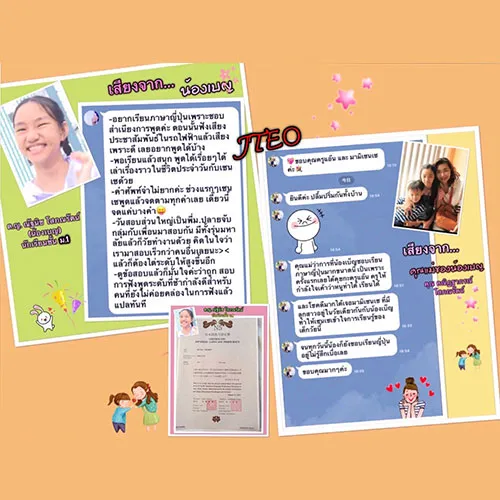 เสียงจาก... น้องเบญ
-อยากเรียนภาษาญี่ปุ่นเพราะชอบ
สำเนียงการพูดค่ะ ตอนนั้นฟังเสียง
ประชาสัมพันธ์ในรถไฟฟ้าแล้วเสียง
เพราะดี เลยอยากพูดได้บ้าง
-พอเรียนแล้วสนุก พูดได้เรื่อยๆได้
เล่าเรื่องราวในชีวิตประจำวันกับเซน
เซด้วย
-คำศัพท์จำไม่ยากค่ะ ช่วงแรกเซน
เซพูดแล้วจดตามทุกคำเลย เดี๋ยวนี้
จดแค่บางคำ
-วันสอบส่วนใหญ่เป็นพี่ม.ปลายจับ
กลุ่มกับเพื่อนมาสอบกัน มีทั้งรุ่นมหา
ลัยแล้วก็วัยทำงานด้วย คิดในใจว่า
เรามาสอบเร็วกว่าคนอื่นเลยนะ>
แล้วก็ต้องไต่ระดับให้สูงขึ้นอีก
-ดูข้อสอบแล้วก็มั่นใจค่ะว่าถูก สอบ
การฟังพูดระดับที่ช้ากำลังดีสำหรับ
คนที่ยังไม่ค่อยคล่องการฟังแล้ว
แปลทันที
(น้องเบญ)
นักเรียนชั้น ม.1
JTEO
ขอบคุณครูแอ้น และ มามิเซนเซ
ค่ะ
ยินดีค่ะ ปลื้มปริ่มกันทั้งบ้าน
เสียงจาก...
คุณแม่ของน้องเบญ
คุณแม่ว่าการที่น้องเบญชอบเรียน
ภาษาญี่ปุ่นมากขนาดนี้ เป็นเพราะ
ครั้งแรกเลยได้คุยกะครูแอ้น ครูให้
กำลังใจเค้าว่าหนูทำได้ เรียนได้
และโชคดีมากได้เจอมามิเซนเซ ที่มี
ลูกสาวอยู่ในวัยเดียวกันกับน้องเบญ
ทำให้เซนเซเข้าใจการเรียนรู้ของ
เด็กวัยนี้
จนทุกวันนี้น้องก็ยังชอบเรียนญี่ปุ่น
อยู่ไม่รู้สึกเบื่อเลย
ขอบคุณมากๆค่ะ